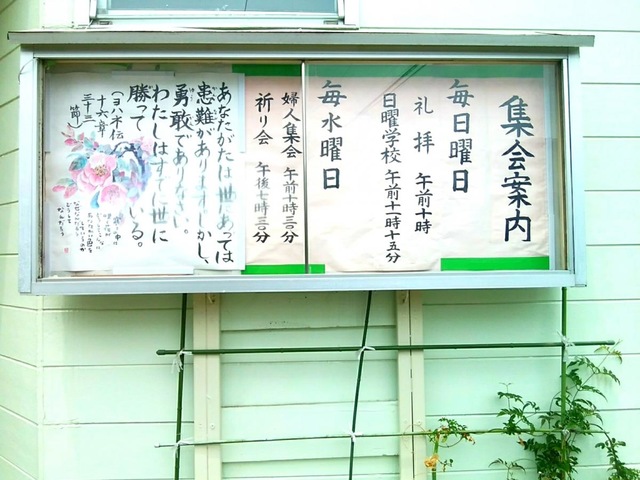 集会案内
毎日曜日
礼拝 午前十時
日曜学校 午前十一時十五分
毎水曜日
婦人集会 午前十時三〇分
祈り会 午後七時三〇分
あなたがたは世にあっては
患難があります。しかし、
勇敢でありなさい。
わたしはすでに世に
勝っている。
(ヨハネ伝
十六章
三十三節)